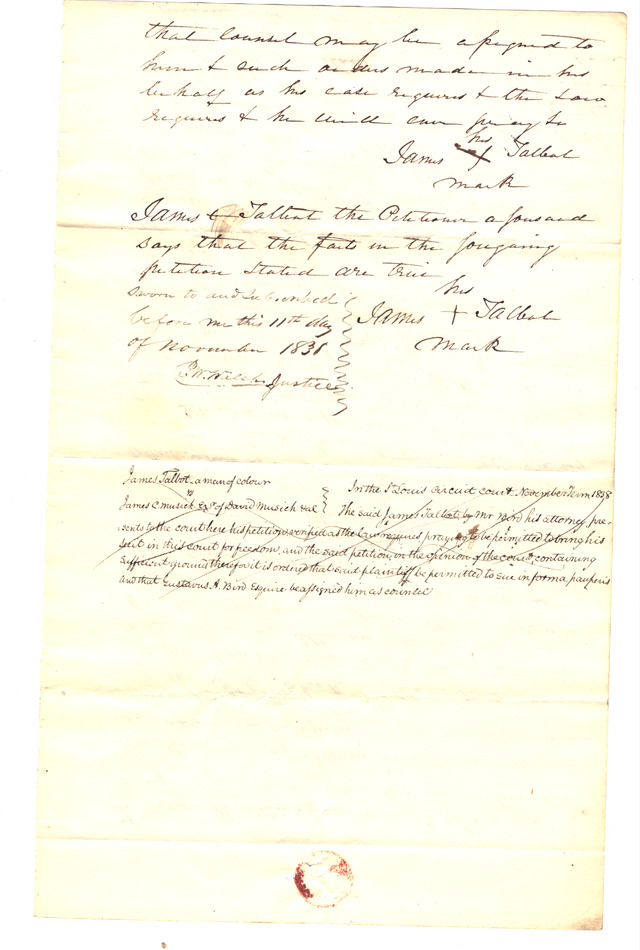 that Counsel may be assigned to
him & such orders made in his
behalf as his case requires & the Law
requires & he will ever pray &c
his
James + Talbot
mark
James Talbot the Petitioner and
says that the facts in the foregoing
petition stated are true
his
Sworn to and Subscribed
James + Talbot
before me this 11th day
mark
of November 1838
P.W. Walsh Justice
James Talbot a man of colour
In the St Louis circuit court November Term 1838
vs
James C. Musick Exr of David Musick & al
The said James Talbot by Mr Bird his attorney pre-
sents to the court here his petition verified as the law requires praying to be permitted to bring his
suit in this court for freedom, and the said petition, in the opinion of the court, containing
sufficient ground therefor it is ordered that said plaintiff be permitted to sue in forma pauperis
and that Gustavus A. Bird Esquire be assigned him as counsel